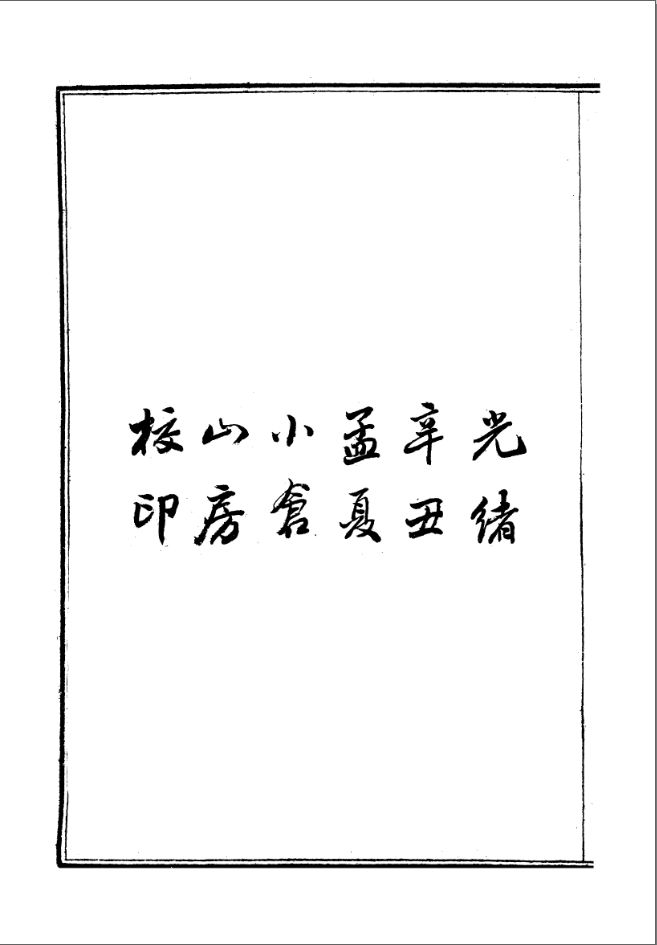 光緒
辛丑
孟夏
小倉
山房
校印